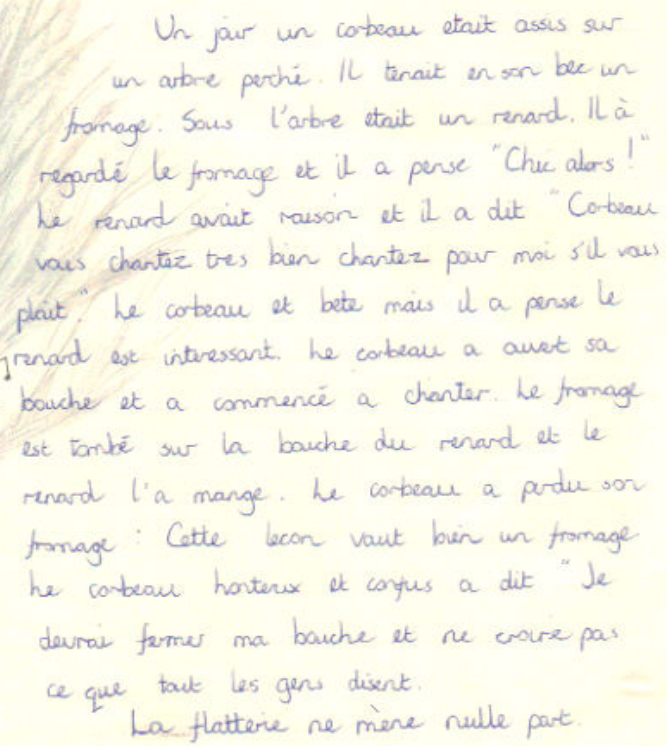 Un jour un corbeau etait assis sur
un arbre perché. Il tenait en son bec un
fromage. Sous l'arbre etait un renard. Il à
regardé le fromage et il a pense "Chic alors!"
Le renard avait raison et il a dit "Corbeau
vous chantez tres bien chantez pour moi s'il vous
plait." Le corbeau et bete mais il a pense le
renard est interessant. Le corbeau a ouvert sa
bouche et a commencé a chanter. Le fromage
est tombé sur la bouche du renard et le
renard l'a mange. Le corbeau a perdu son
fromage : Cette lecon vaut bien un fromage
Le corbeau honteux et confus a dit "Je
devrai fermer ma bouche et ne croire pas
ce que tout les gens disent.
La flatterie ne mène nulle part.